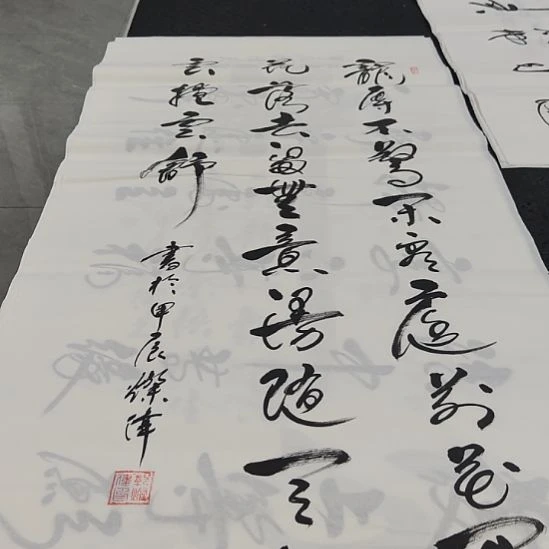 寵辱不驚閑看庭前花
花落去留無意漫隨天
雲捲雲舒
書於甲辰